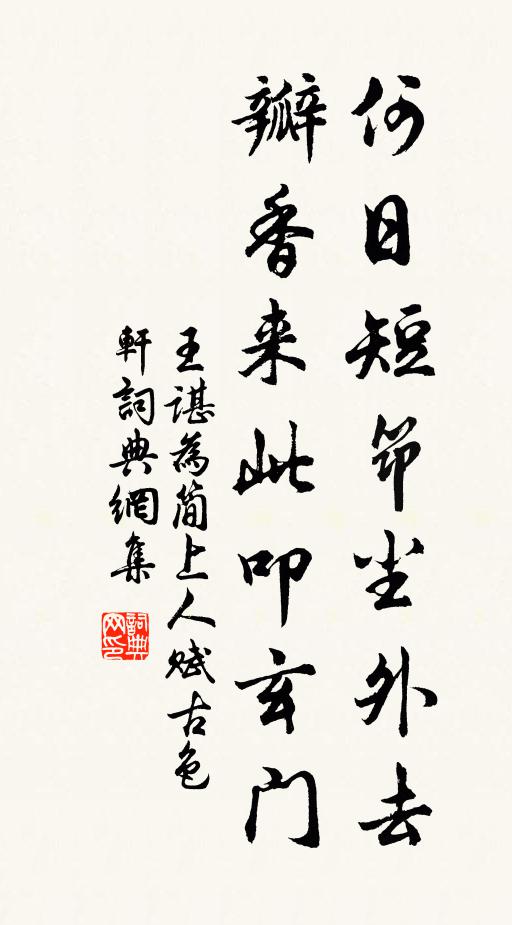 何日短笻尘外去
瓣香来此叩玄門
王諶為简上人赋古色
軒詞典網集
詞典网印